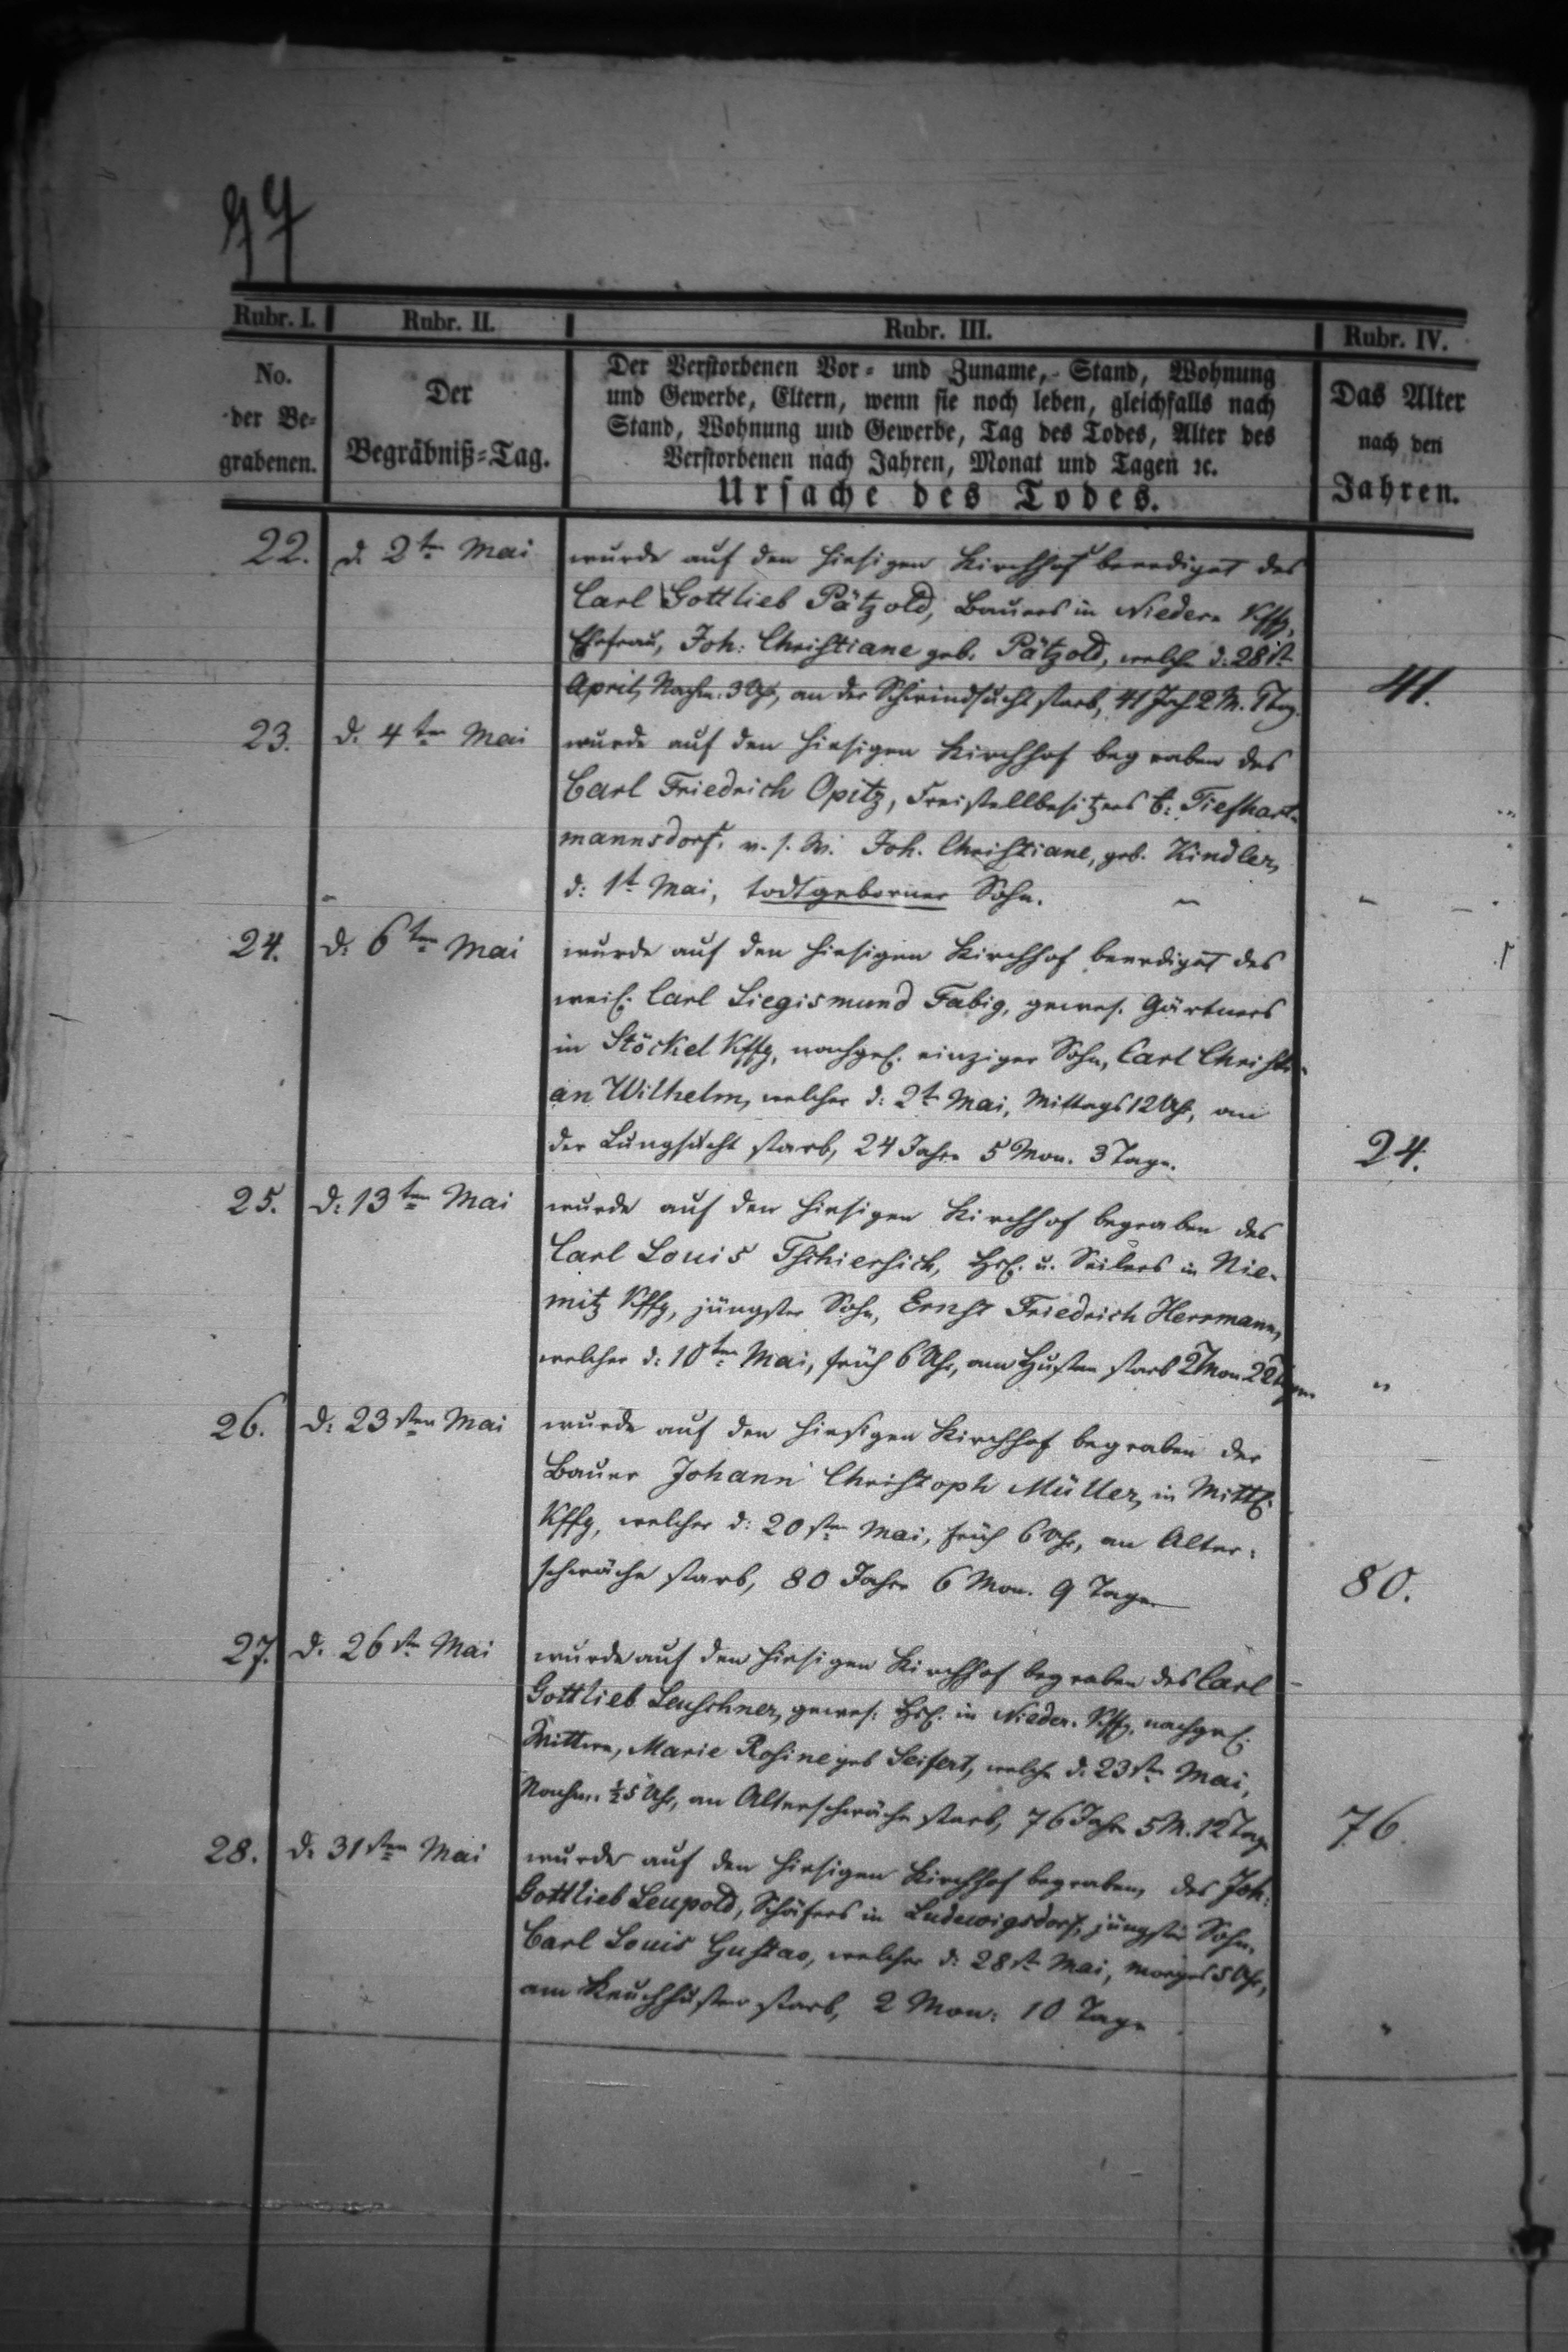 Rubr. I. Rubr. II. Rubr. III. Rubr. IV.
No.
der Be-
grabenen.
Der
Begräbniß-Tag.
Der Verstorbenen Vor- und Zuname, Stand, Wohnung
und Gewerbe, Eltern, wenn sie noch leben, gleichfalls nach
Stand, Wohnung und Gewerbe, Tag des Todes, Alter des
Verstorbenen nach Jahren, Monat und Tagen ꝛc.
Ursache des Todes.
Das Alter
nach den
Jahren.
22. d. 2ten Mai wurde auf den hiesigen Kirchhof beerdiget des
Carl Gottlieb Pätzold, Bauers in Nieder- Kffg,
Ehefrau, Joh: Christiane geb. Pätzold, welche d: 28st
April, Nachm: 3 Uhr, an der Schwindsucht starb, 41 Jah. 2 M. Tag. 41.
23. d. 4ten Mai wurde auf den hiesigen Kirchhof begraben des
Carl Friedrich Opitz, Freistellbesitzers b: Tiefhart-
mannsdorf, v. s. W. Joh. Christiane, geb. Kindler,
d: 1t Mai, todtgeborner Sohn.
24. d: 6ten Mai wurde auf den hiesigen Kirchhof beerdiget des
weil: Carl Siegismund Fabig, gewes. Gärtners
in Stöckel Kffg, nachgel. einziger Sohn, Carl Christi-
an Wilhelm, welcher d: 2t Mai, Mittags 12 Uhr, an
der Lungsucht starb, 24 Jahre 5 Mon. 3 Tage. 24.
25. d: 13ten Mai wurde auf den hiesigen Kirchhof begraben des
Carl Louis Tschierschich, Hsl. u. Seilers in Nie-
mitz Kffg, jüngster Sohn, Ernst Friedrich Herrmann,
welcher d: 10ten Mai, früh 6 Uhr, am Husten starb 2 Mon 22 Tage. "
26. d: 23sten Mai wurde auf den hiesigen Kirchhof begraben der
Bauer Johann Christoph Müller, in Mittl:
Kffg, welcher d: 20sten Mai, früh 6 Uhr, an Alter-
schwäche starb, 80 Jahre 6 Mon. 9 Tage 80.
27. d. 26st Mai wurde auf den hiesigen Kirchhof begraben des Carl
Gottlieb Leuschner, gewes: Hsl. in Nieder- Kffg, nachgel.
Wittwe, Marie Rosine geb Seifert, welche d. 23sten Mai,
Nachm. ½5 Uhr, an Alterschwäche starb, 76 Jahre 5 M. 12 Tage 76.
28. d. 31sten Mai wurde auf den hiesigen Kirchhof begraben, des Joh:
Gottlieb Leupold, Schäfers in Ludewigsdorf, jüngster Sohn,
Carl Louis Gustav, welcher d: 28st Mai, Morgens 5 Uhr,
am Keuchhusten starb, 2 Mon: 10 Tage "